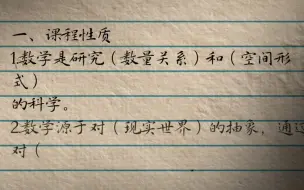 一、课程性质
1.数学是研究（数量关系）和（空间形
式）
的科学。
2.数学源于对（现实世界）的抽象，通过
对（